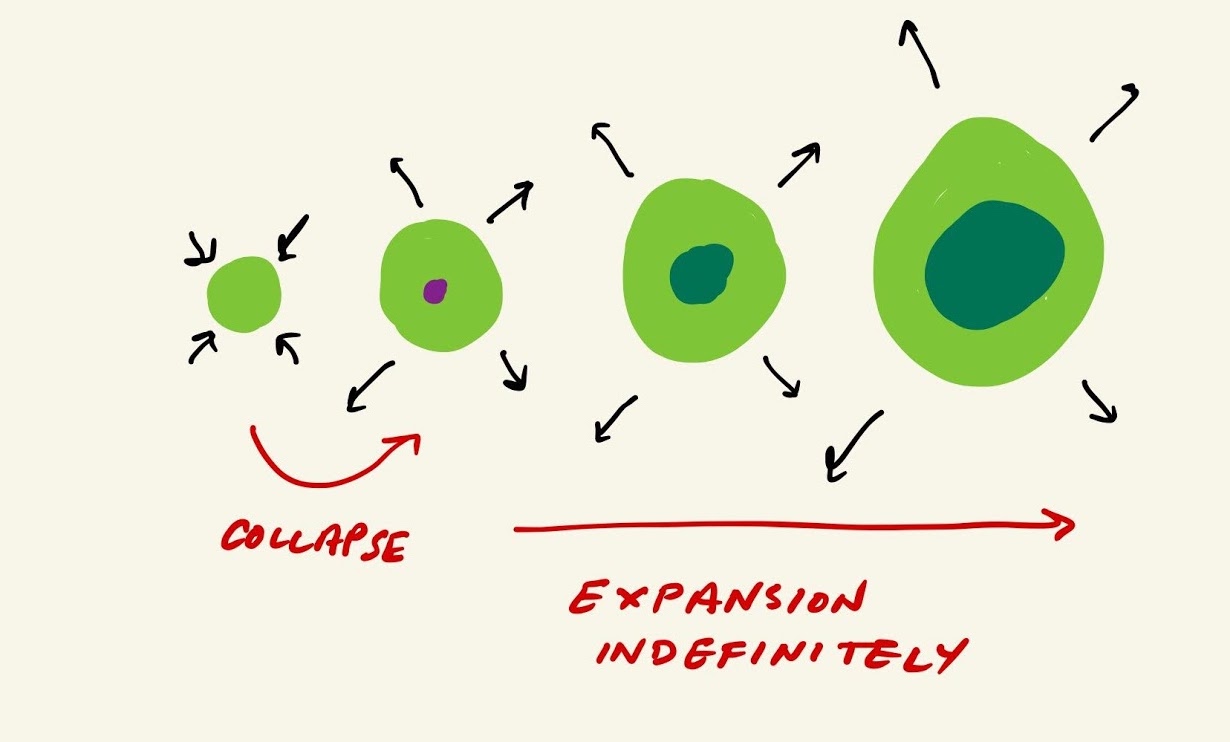 COLLAPSE
EXPANSION
INDEFINITELY